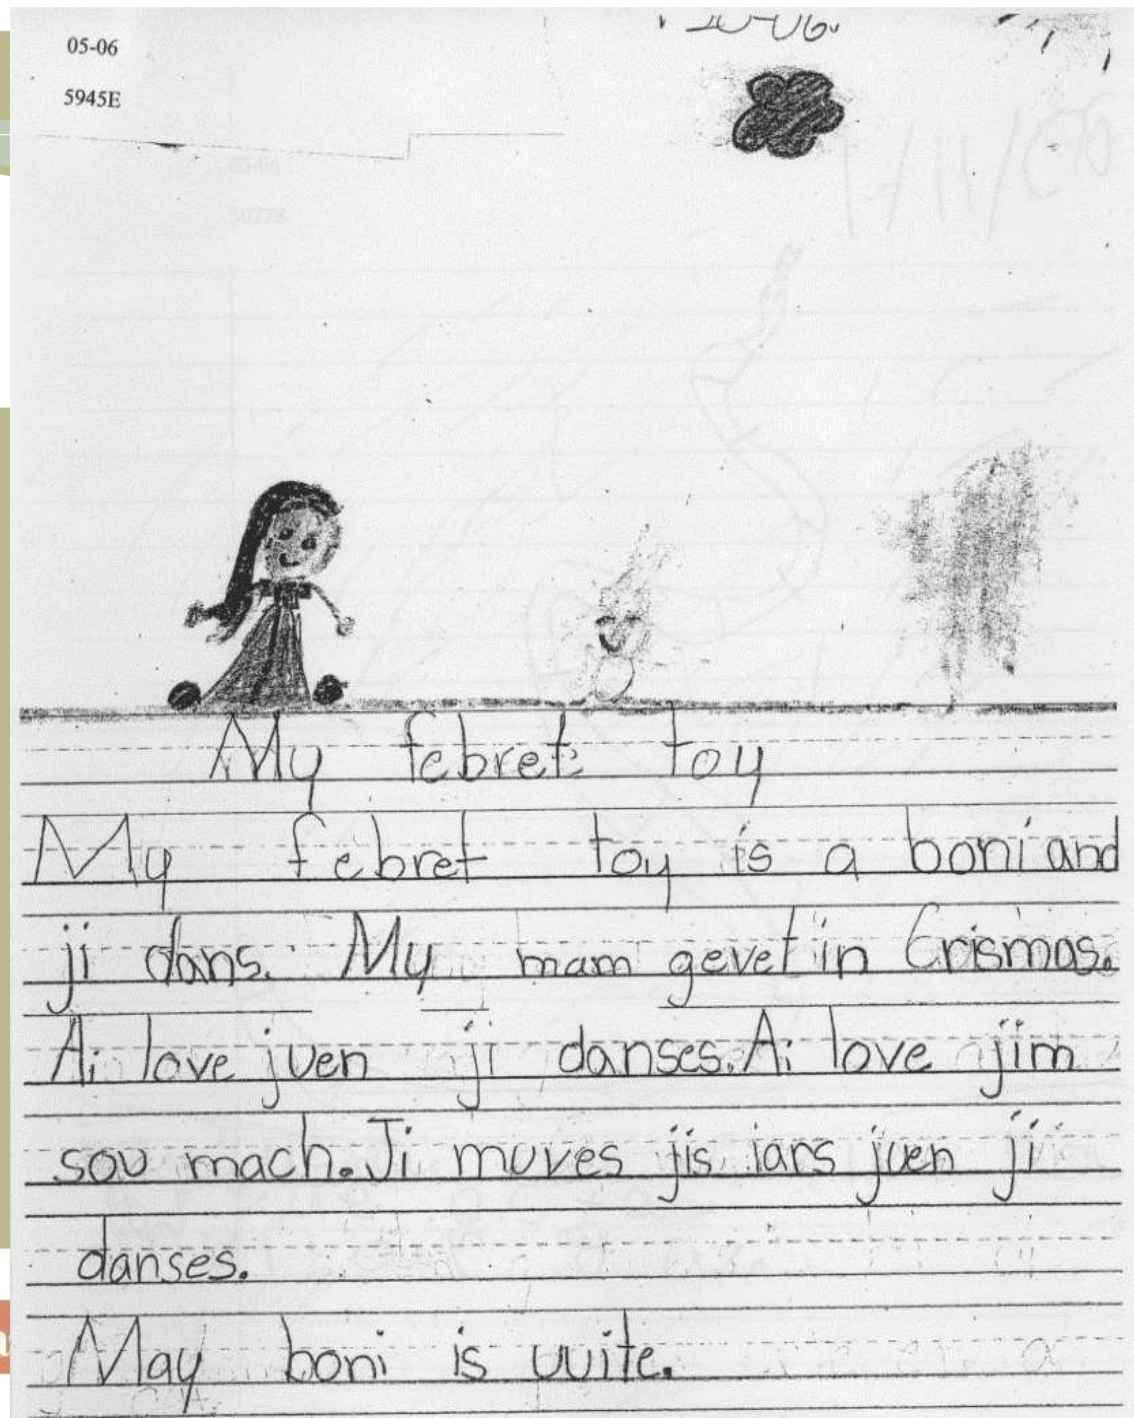 05-06
5945E
My febret toy
My febret toy is a boni and
ji dans. My mam gevet in Crismas.
Ai love juen ji danses. Ai love jim
sou mach. Ji muves jis iars juen ji
danses.
May boni is uuite.